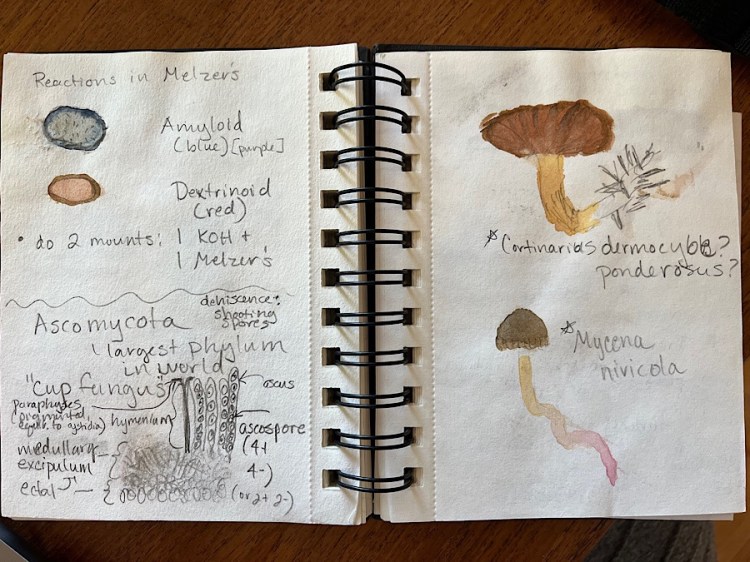 Reactions in Melzer's
Amyloid
(blue) [purple]
Dextrinoid
(red)
• do 2 mounts: 1 KOH +
1 Melzer's
dehiscence:
shooting
spores
Ascomycota
largest phylum
in world
"Cup fungus"
ascus
paraphyses
(pigmented,
equiv. to cystidia)
hymenium
ascospore
(4+
4-)
(or 2+ 2-)
medullary
excipulum
ectal "
* Cortinarius dermocybe?
ponderosus?
* Mycena
nivicola